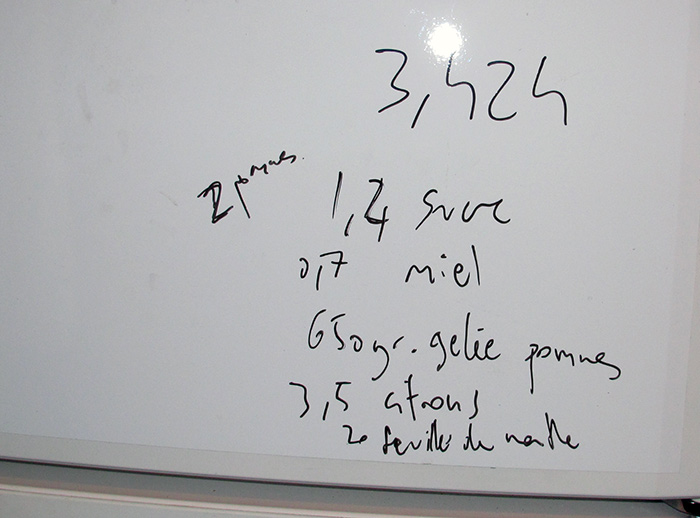 3,424
2 pommes
1,2 sucre
0,7 miel
650 gr. gelée pommes
3,5 citrons
20 feuilles de menthe